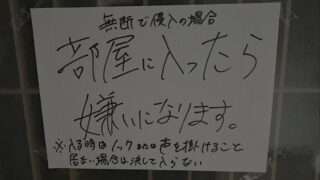 無断で侵入の場合
部屋に入ったら
嫌いになります。
※入る時はノックまたは声を掛けること
居ない場合は決して入らない